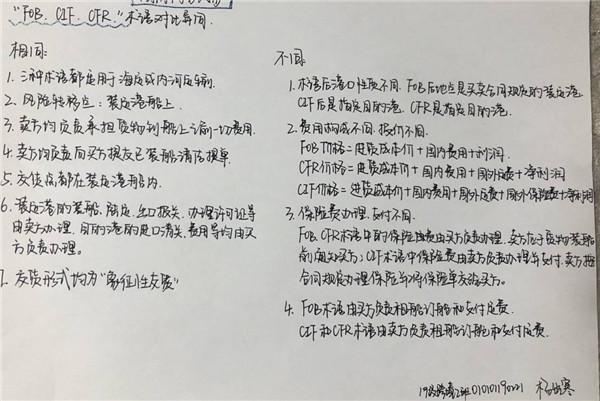 "FOB、CIF、CFR"术语对比异同
相同:
1. 三种术语都适用于海运或内河运输.
2. 风险转移点: 装运港船上.
3. 卖方均负责承担货物到船上之前一切费用.
4. 卖方均负责向买方提交已装船清洁提单.
5. 交货点都在装运港船内.
6. 装运港的装船、陆运、出口报关、办理许可证等
由卖方办理. 目的港的进口清关、费用等均由买
方负责办理.
7. 交货形式均为"象征性交货"
不同:
1. 术语后港口性质不同. FOB后地点是买卖合同规定的装运港
CIF后是指定目的港. CFR是指定目的港.
2. 费用构成不同. 报价不同.
FOB价格=进货成本价+国内费用+利润.
CFR价格=进货成本价+国内费用+国外运费+净利润
CIF价格=进货成本价+国内费用+国外运费+国外保险费+净利润
3. 保险费办理、支付不同.
FOB、CFR术语中的保险由买方负责办理. 卖方应于货物装船
前通知买方; CIF术语中保险费由卖方负责办理并支付. 卖方按
合同规定办理保险并将保险单交给买方。
4. FOB术语由买方负责租船订舱和支付运费.
CIF和CFR术语由卖方负责租船订舱和支付运费.